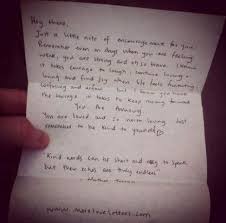 Hey there,
Just a little note of encouragement for you.
Remember even on days when you are feeling
weak, you are strong and oh so brave. I know
it takes courage to laugh, continue loving
loving and find joy when life feels
and unfair but I know you have
the courage it takes to keep moving forward
You Are Amazing.
You are loved and so worth loving. Just
remember to be kind to yourself
"Kind words can be short and easy to speak,
but their echos are truly endless"
- Mother Teresa
www.moreloveletters.com